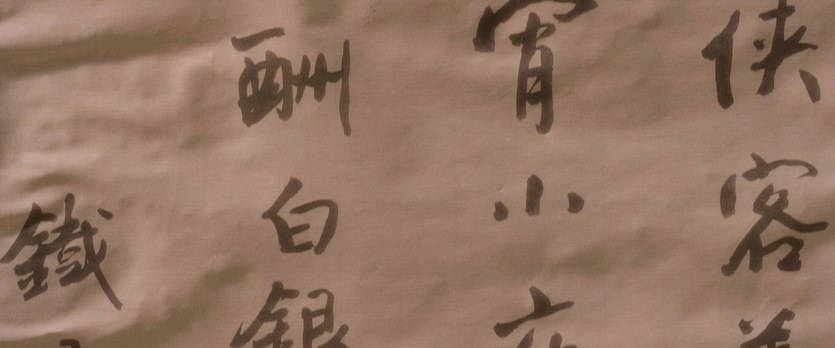 俠客
宵小
酬白銀
鐵